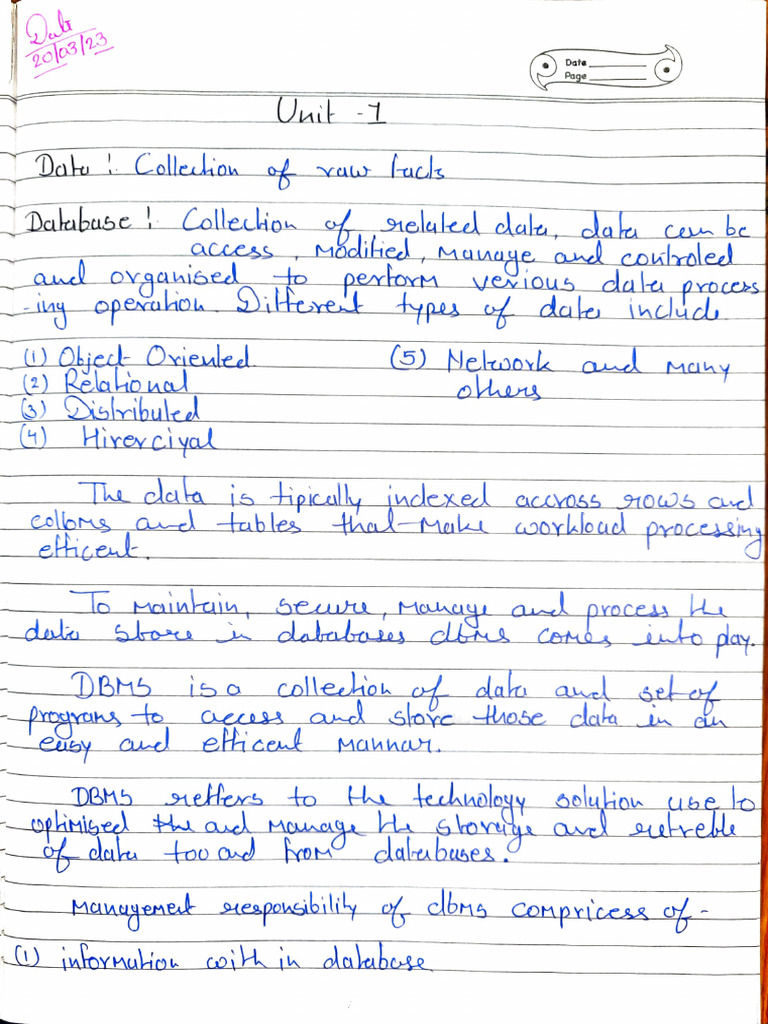 Date
20/03/23
Date
Page
Unit - 1
Data : Collection of raw facts
Database : Collection of related data, data can be
access, modified, manage and controled
and organised to perform verious data process
-ing operation. Different types of data include.
(1) Object Oriented
(2) Relational
(3) Distributed
(4) Hirerciyal
(5) Network and many
others
The data is tipically indexed accross rows and
colloms and tables that make workload processing
efficent.
To maintain, secure, manage and process the
data store in databases dbms comes into play.
DBMS is a collection of data and set of
programs to access and store those data in an
easy and efficent mannar.
DBMS reffers to the technology solution use to
optimised the and manage the storage and retreble
of data too and from databases.
Management responsibility of dbms compricess of -
(1) information with in database